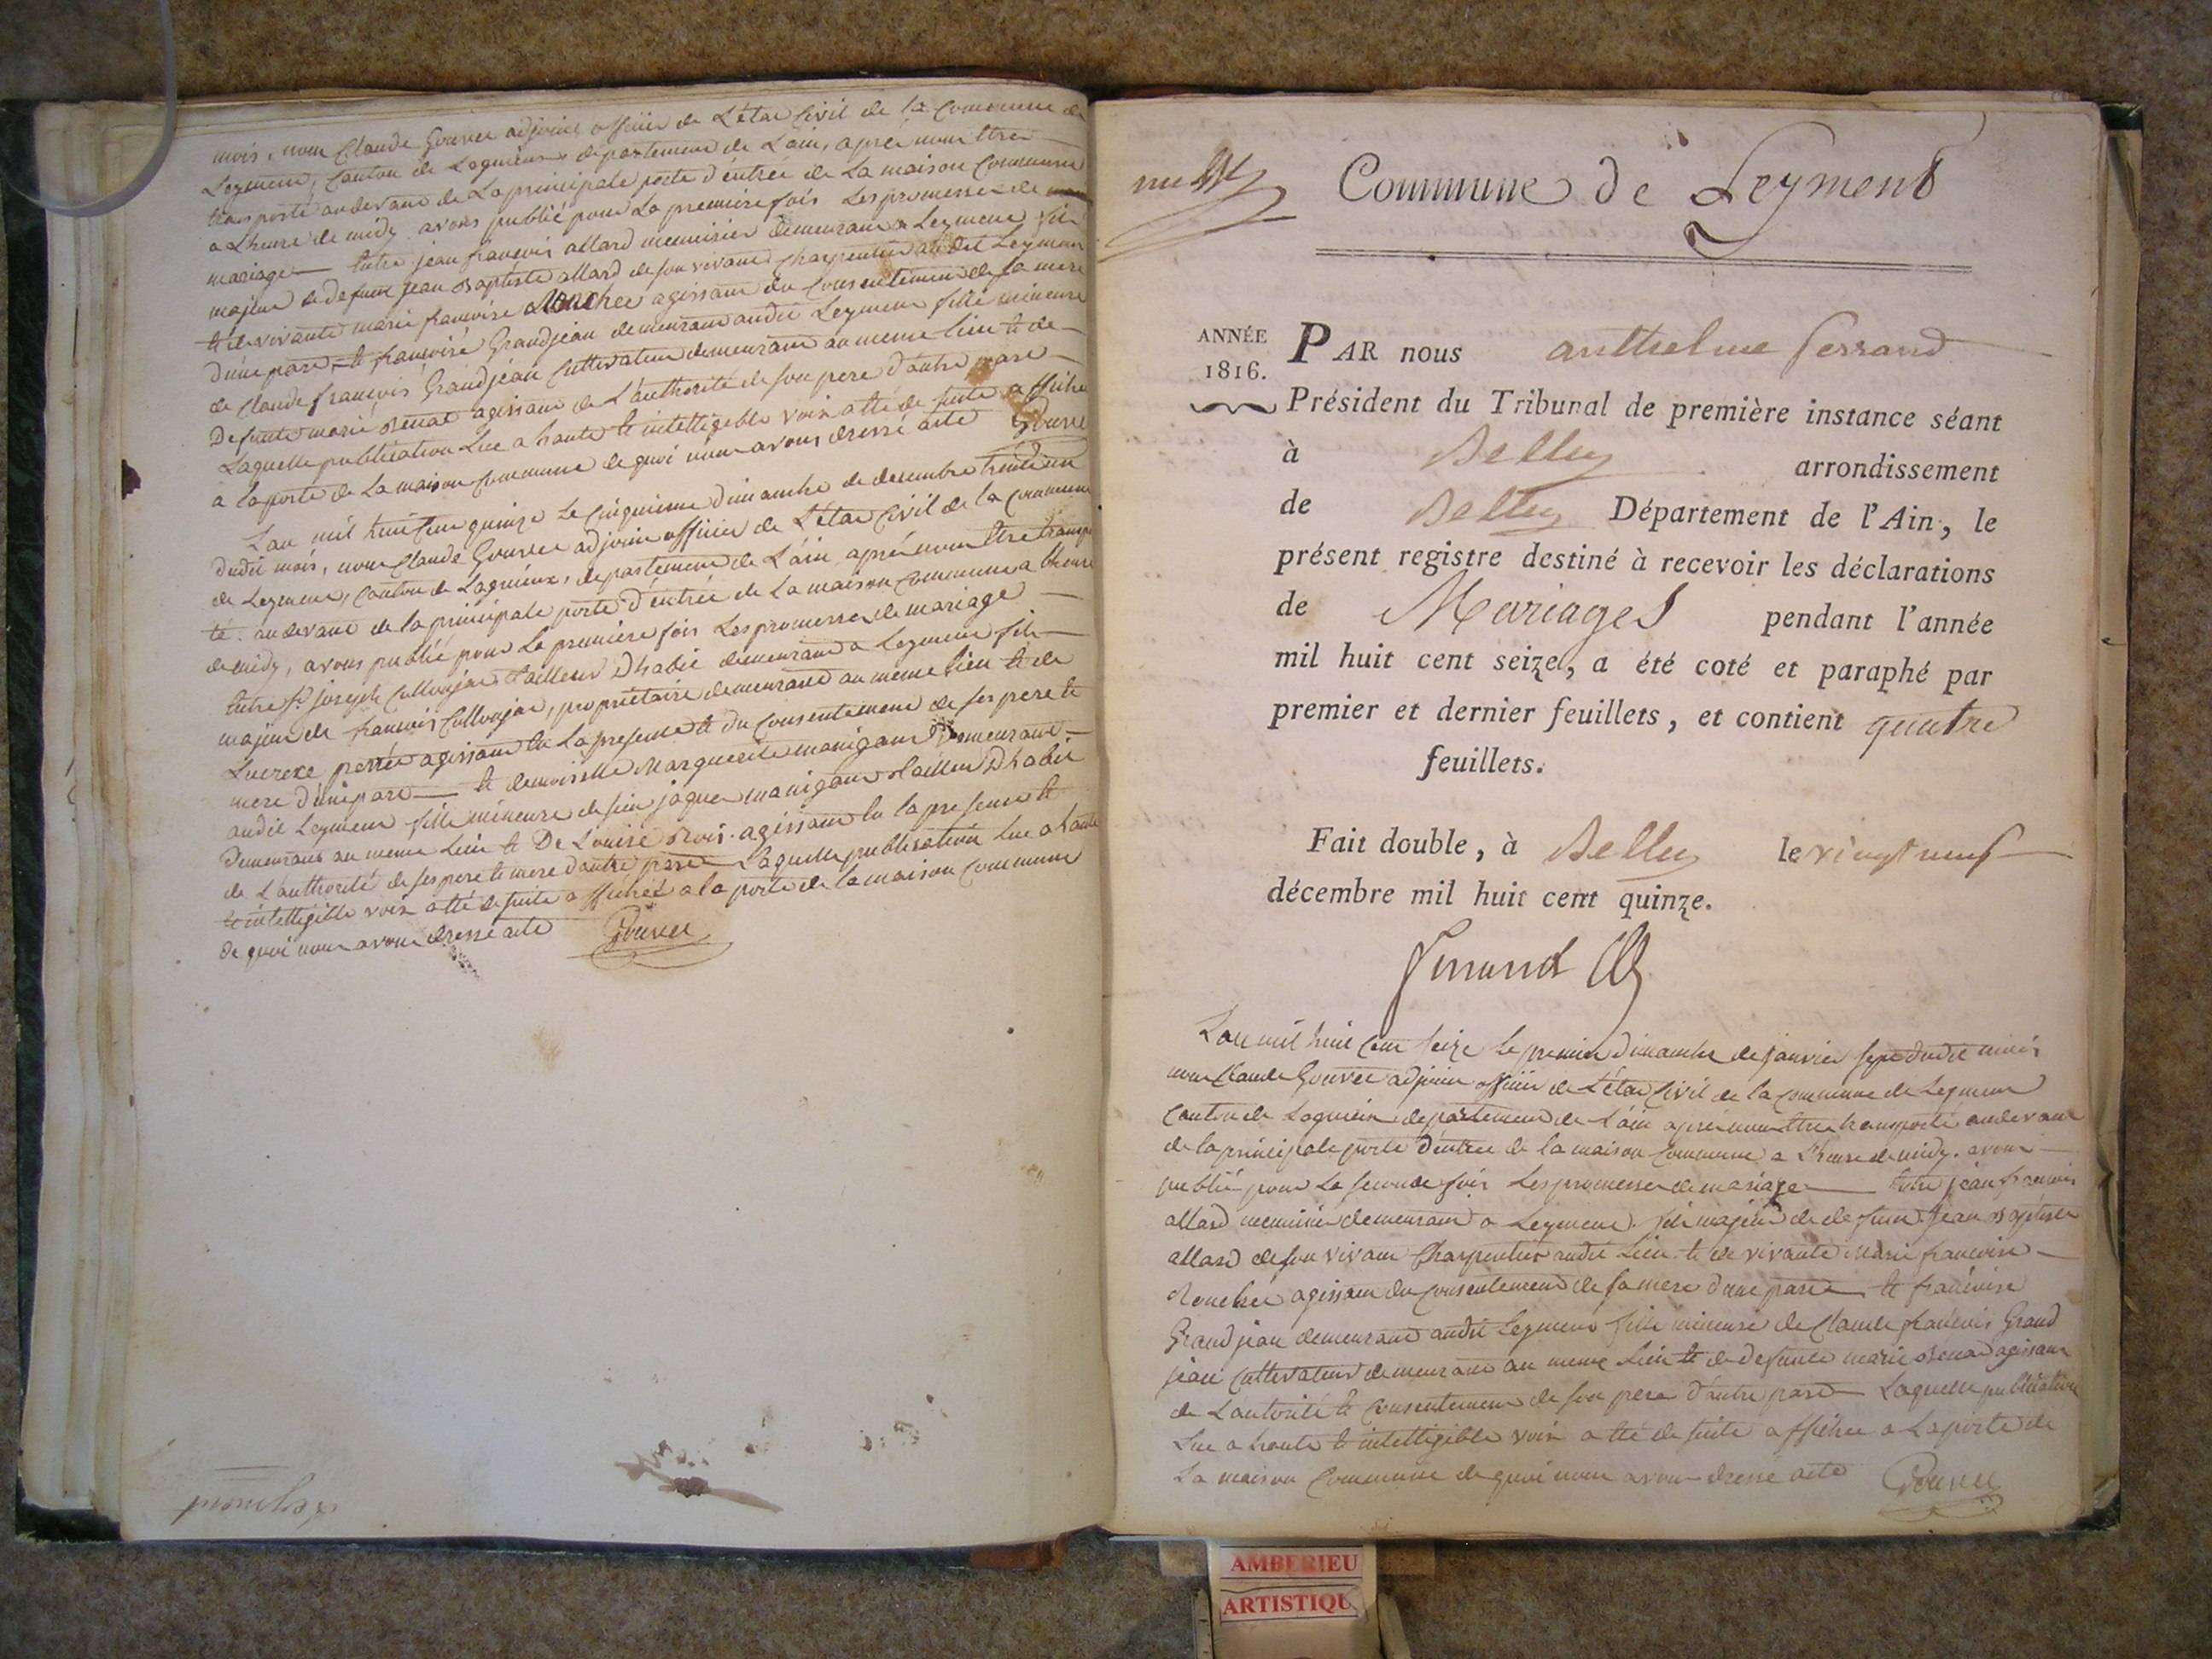 mois, nous Claude Gouvee adjoint officier de L'état Civil de la Commune de
Leyment, Canton de Lagnieux, departement de L'ain, après nous être
transporté audevant de La principale porte d'entrée de La maison Commune
a L'heure de midy avons publié pour La premiere fois Les promesses de
mariage entre jean françois allard menuisier demeurant a Leyment fils
majeur de defunt jean Baptiste allard de son vivant charpentier audit Leyment
et de vivante marie françoise agissant du Consentement de sa mere
d'une part, et françoise Grandjean demeurant audit Leyment fille mineure
de Claude françois Grandjean Cultivateur demeurant au meme lieu et de
Defunte marie agissant de L'authorité de son pere d'autre part
Laquelle publication Lue a haute et intelligible voix a été de suite affiché
a la porte de La maison Commune de quoi nous avons dressé acte Gouvee
L'an mil huit cent quinze Le Cinquieme Dimanche de decembre trente un
dudit mois, nous Claude Gouvee adjoint officier de L'état Civil de la Commune
de Leyment, Canton de Lagnieux, departement de L'ain après nous être transpor
té audevant de la principale porte d'entrée de La maison Commune a L'heure
de midy, avons publié pour La premiere fois Les promesses de mariage
entre Sr joseph tailleur Dhabit demeurant a Leyment fils
majeur de françois, proprietaire demeurant au meme Lieu et de
Lucrece agissant en La presence et du Consentement de ses pere et
mere d'une part et demoiselle Marguerite manigant demeurant
audit Leyment fille mineure de Sieur jaques manigant tailleur Dhabit
Demeurant au meme Lieu et De Louise agissant en la presence et
de L'authorité de ses pere et mere d'autre part Laquelle publication Lue a haute
et intelligible voix a été de suite affiché a la porte de la maison Commune
de quoi nous avons dressé acte Gouvee
Leyment
Commune de Leyment
ANNÉE
1816.
PAR nous anthelme ferrand
Président du Tribunal de première instance séant
à Belley arrondissement
de Belley Département de l'Ain, le
présent registre destiné à recevoir les déclarations
de Mariages pendant l'année
mil huit cent seize, a été coté et paraphé par
premier et dernier feuillets, et contient quatre
feuillets.
Fait double, à Belley le vingt neuf
décembre mil huit cent quinze.
ferrand
L'an mil huit Cent Seize Le premier Dimanche de janvier sept dudit mois
nous Claude Gouvee adjoint officier de L'état Civil de la Commune de Leyment
Canton de Lagnieux departement de L'ain après nous être transporté audevant
de la principale porte d'entrée de la maison Commune a L'heure de midy avons
publié pour La seconde fois Les promesses de mariage entre jean françois
allard menuisier demeurant a Leyment fils majeur de defunt jean Baptiste
allard de son vivant Charpentier audit Lieu et de vivante Marie françoise
agissant du Consentement de sa mere d'une part et françoise
Grand jean demeurant audit Leyment fille mineure de Claude françois Grand
jean Cultivateur demeurant au meme Lieu et de defunte marie agissant
de L'autorité et Consentement de son pere d'autre part Laquelle publication
Lue a haute et intelligible voix a été de suite affichee a La porte de
La maison Commune de quoi nous avons dressé acte Gouvee
AMBERIEU
ARTISTIQU